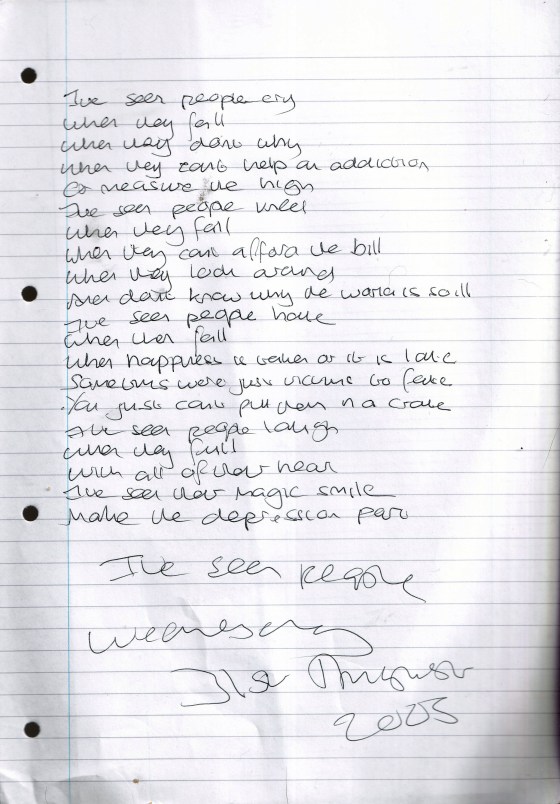 I've seen people cry
when they fall
when they don't why
when they can't help an addiction
or measure the high
I've seen people kneel
when they fall
when they can't afford the bill
when they look around
And don't know why the world is so ill
I've seen people hate
when they fall
when happiness is taken or it is late
Sometimes we're just victims to fate
You just can't put them in a crate
I've seen people laugh
when they fall
with all of their heart
I've seen their magic smile
make the depression part
I've seen people
Wednesday
31st August
2005